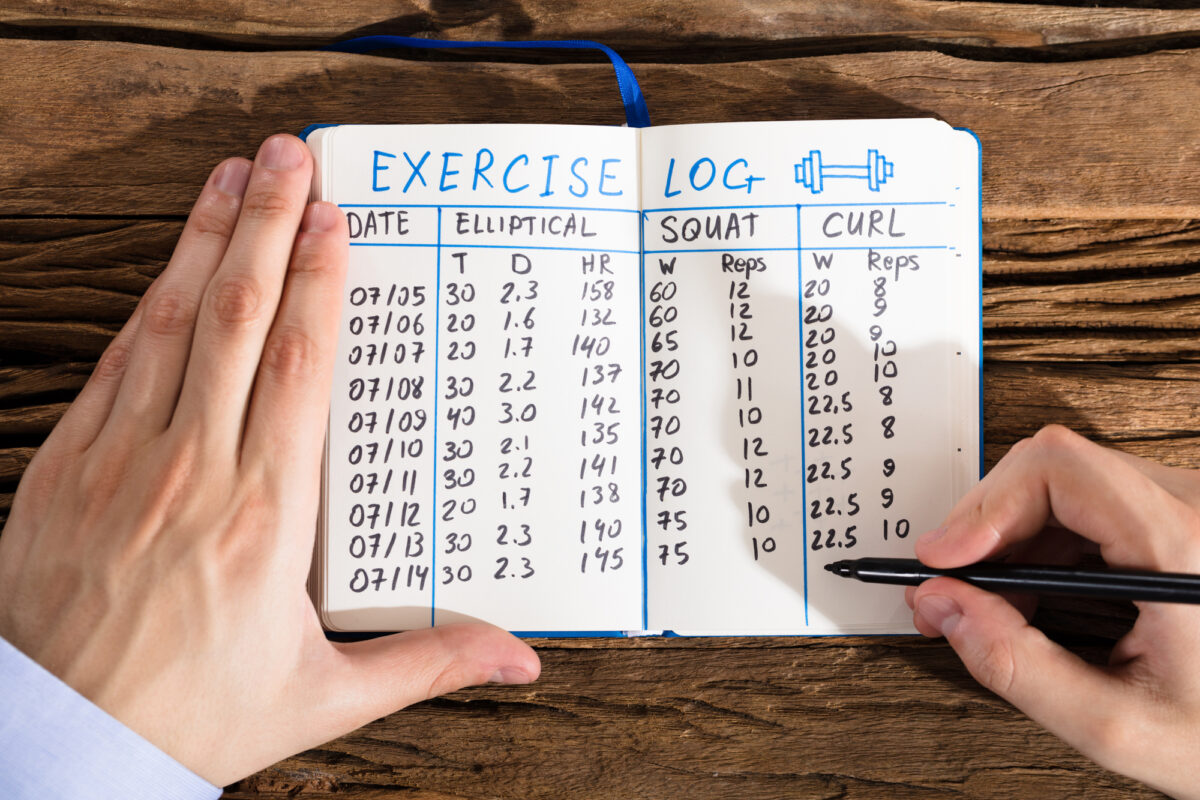 EXERCISE LOG
DATE ELLIPTICAL SQUAT CURL
T D HR W Reps W Reps
07/05 30 2.3 158 60 12 20 8
07/06 20 1.6 132 60 12 20 9
07/07 20 1.7 140 65 12 20 9
07/08 30 2.2 137 70 10 20 10
07/09 40 3.0 142 70 11 20 10
07/10 30 2.1 135 70 10 22,5 8
07/11 30 2.2 141 70 12 22.5 8
07/12 20 1.7 138 70 12 22.5 9
07/13 30 2.3 140 75 10 22.5 9
07/14 30 2.3 145 75 10 22.5 10